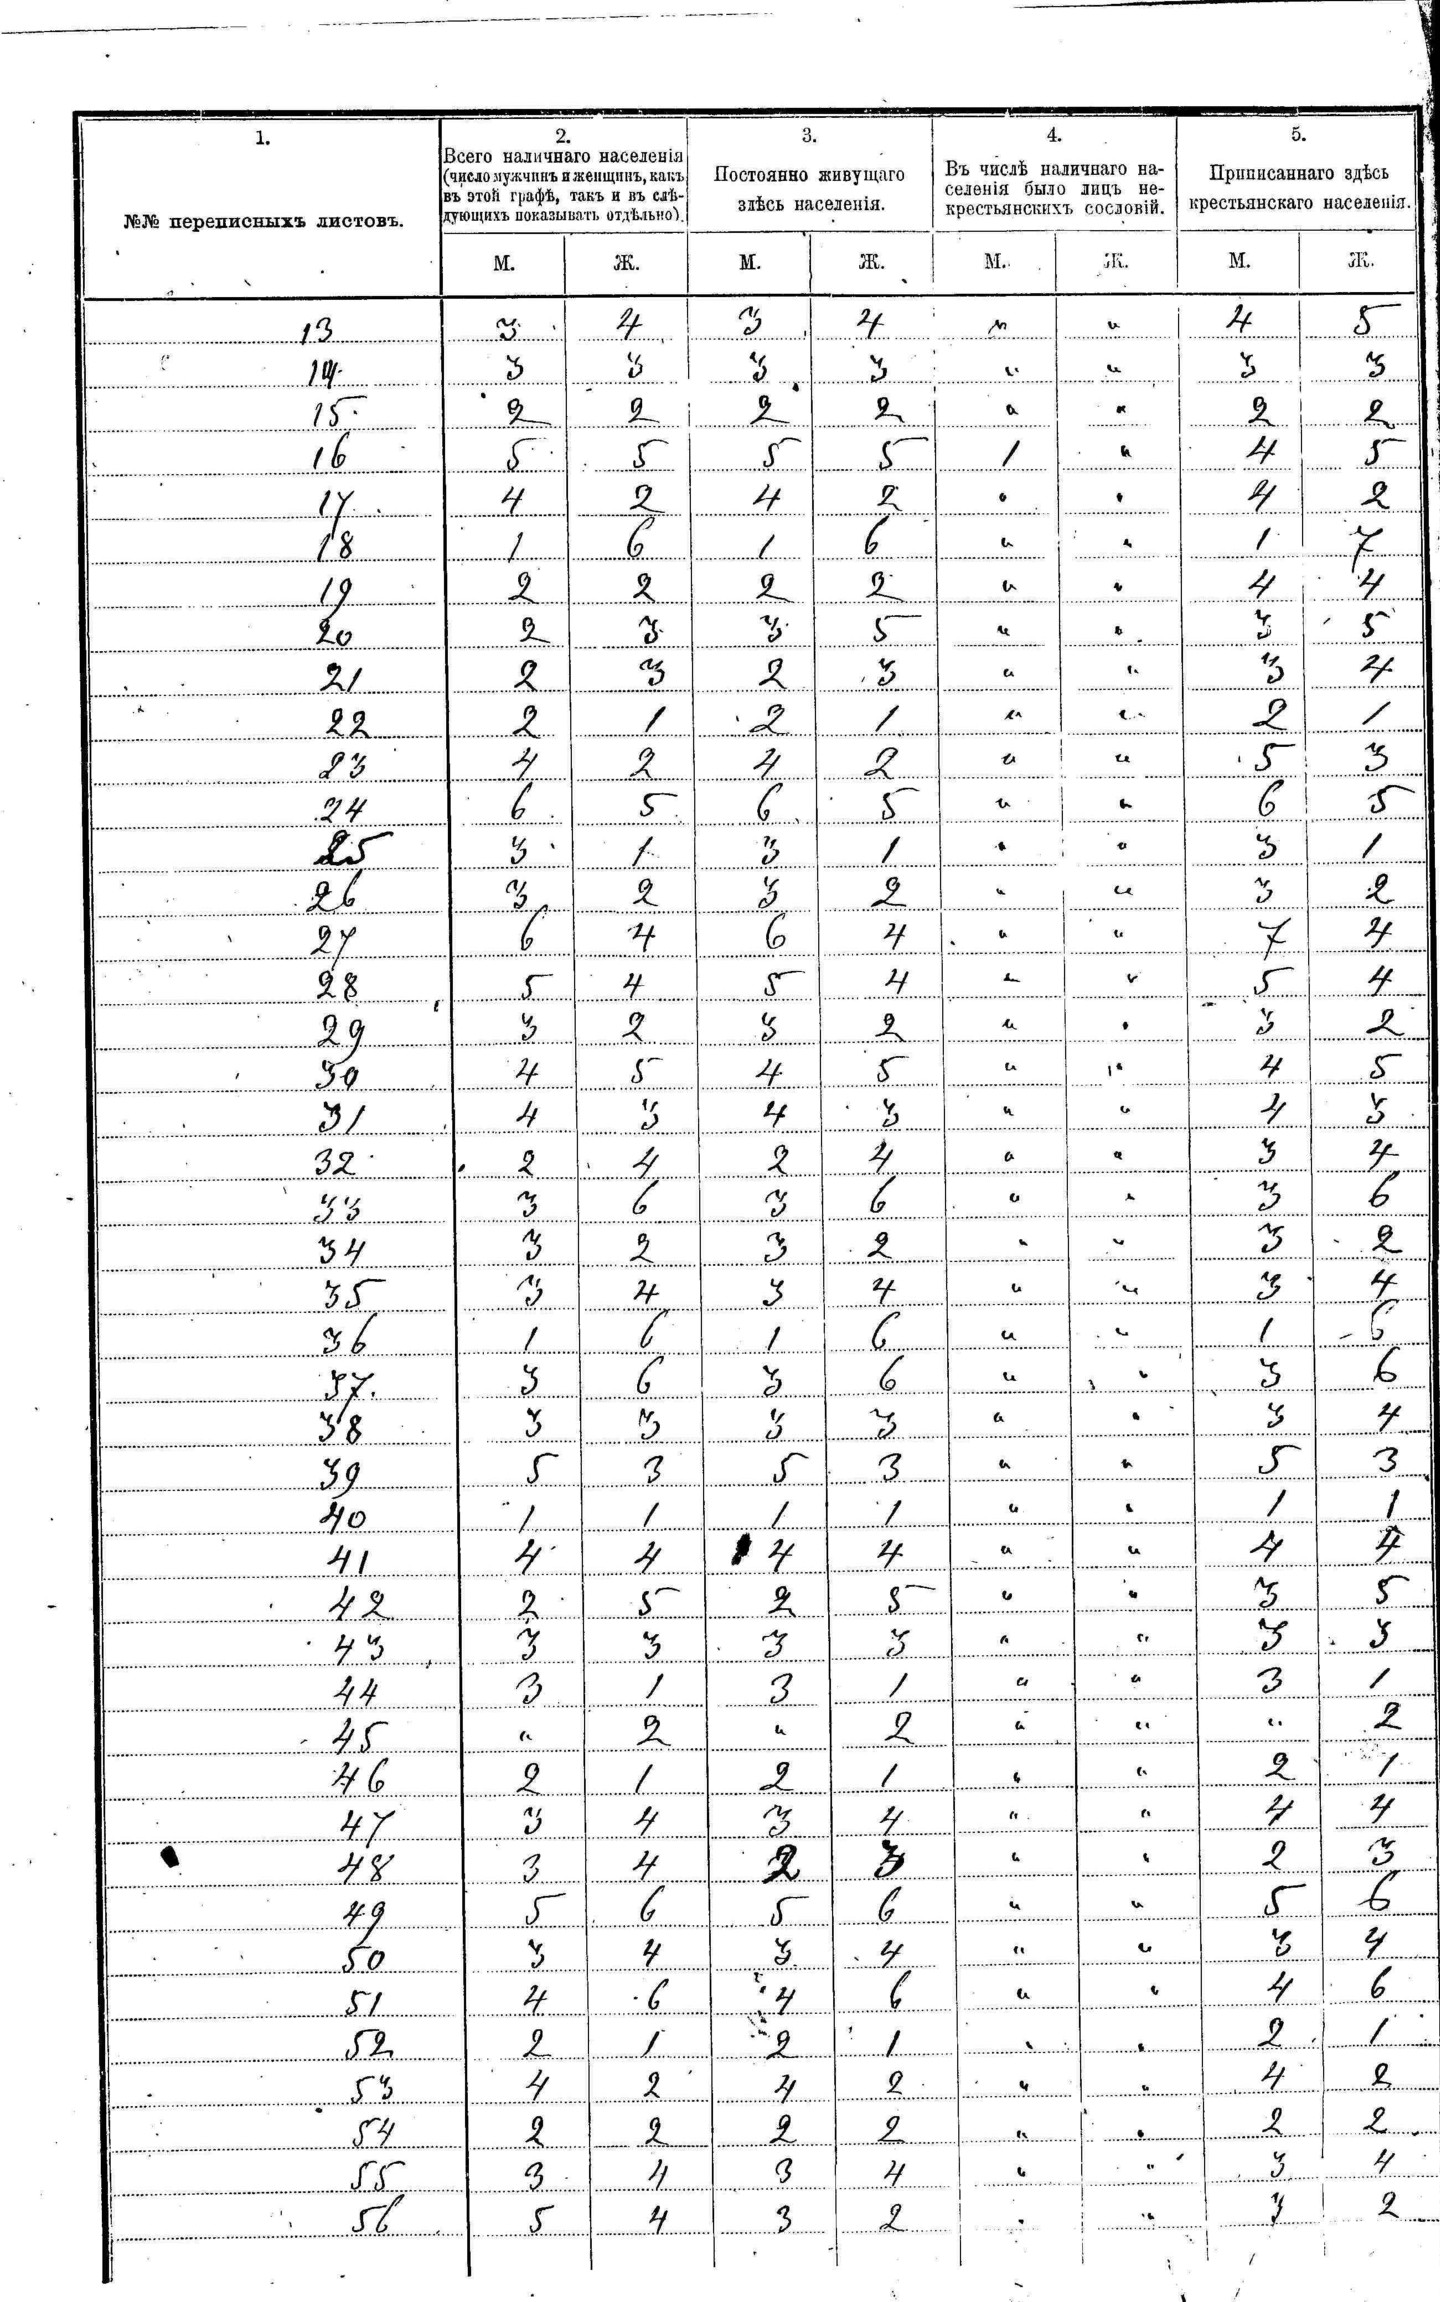 1. 2. 3. 4. 5.
№№ переписныхъ листовъ.
Всего наличнаго населенія
(число мужчинъ и женщинъ, какъ
въ этой графѣ, такъ и въ слѣ-
дующихъ показывать отдѣльно).
Постоянно живущаго
здѣсь населенія.
Въ числѣ наличнаго на-
селенія было лицъ не-
крестьянскихъ сословій.
Приписаннаго здѣсь
крестьянскаго населенія.
М. Ж. М. Ж. М. Ж. М. Ж.
13 3 4 3 4 " " 4 5
14 3 3 3 3 " " 3 3
15 2 2 2 2 " " 2 2
16 5 5 5 5 1 " 4 5
17 4 2 4 2 " " 4 2
18 1 6 1 6 " " 1 7
19 2 2 2 2 " " 4 4
20 2 3 3 5 " " 3 5
21 2 3 2 3 " " 3 4
22 2 1 2 1 " " 2 1
23 4 2 4 2 " " 5 3
24 6 5 6 5 " " 6 5
25 3 1 3 1 " " 3 1
26 3 2 3 2 " " 3 2
27 6 4 6 4 " " 7 4
28 5 4 5 4 " " 5 4
29 3 2 3 2 " " 3 2
30 4 5 4 5 " " 4 5
31 4 3 4 3 " " 4 3
32 2 4 2 4 " " 3 4
33 3 6 3 6 " " 3 6
34 3 2 3 2 " " 3 2
35 3 4 3 4 " " 3 4
36 1 6 1 6 " " 1 6
37 3 6 3 6 " " 3 6
38 3 3 3 3 " " 3 4
39 5 3 5 3 " " 5 3
40 1 1 1 1 " " 1 1
41 4 4 4 4 " " 4 4
42 2 5 2 5 " " 3 5
43 3 3 3 3 " " 3 3
44 3 1 3 1 " " 3 1
45 " 2 " 2 " " " 2
46 2 1 2 1 " " 2 1
47 3 4 3 4 " " 4 4
48 3 4 2 3 " " 2 3
49 5 6 5 6 " " 5 6
50 3 4 3 4 " " 3 4
51 4 6 4 6 " " 4 6
52 2 1 2 1 " " 2 1
53 4 2 4 2 " " 4 2
54 2 2 2 2 " " 2 2
55 3 4 3 4 " " 3 4
56 5 4 3 2 " " 3 2